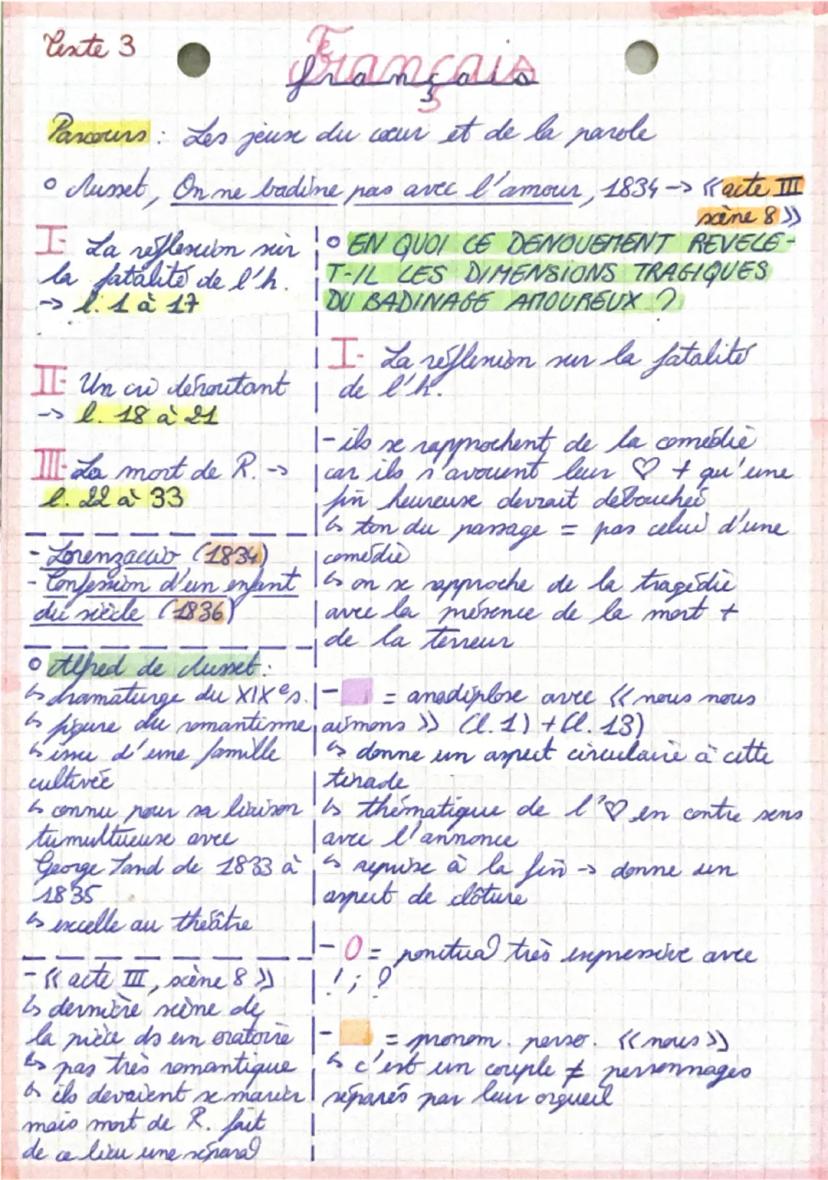 Texte 3
Français
français
Parcours : Les jeux du cœur et de la parole
o Musset, On ne badine pas avec l'amour, 1834 -> « acte III
scène 8 »
I- La réflexion sur
la fatalité de l'h.
-> l. 1 à 17
II- Un cri déroutant
-> l. 18 à 21
III- La mort de R. ->
l. 22 à 33
- Lorenzaccio (1834)
- Confession d'un enfant
du siècle (1836)
o Alfred de Musset :
↳ dramaturge du XIXe s.
↳ figure du romantisme
↳ issu d'une famille
cultivée
↳ connu pour sa liaison
tumultueuse avec
George Sand de 1833 à
1835
↳ excelle au théâtre
- « acte III, scène 8 »
↳ dernière scène de
la pièce ds un oratoire
↳ pas très romantique
↳ ils devaient se marier
mais mort de R. fait
de ce lieu une sépara)
o EN QUOI CE DENOUEMENT REVELE-
T-IL LES DIMENSIONS TRAGIQUES
DU BADINAGE AMOUREUX ?
I- La réflexion sur la fatalité
de l'h.
- ils se rapprochent de la comédie
car ils s'avouent leur ♡ + qu'une
fin heureuse devrait débouchée
↳ ton du passage = pas celui d'une
comédie
↳ on se rapproche de la tragédie
avec la présence de la mort +
de la terreur
- = anadiplose avec « nous nous
aimons » (l. 1) + (l. 13)
↳ donne un aspect circulaire à cette
tirade
↳ thématique de l'♡ en contre sens
avec l'annonce
↳ reprise à la fin -> donne un
aspect de clôture
- 0 = ponctua) très expressive avec
! ; ?
- = pronom. perso. « nous »
↳ c'est un couple ≠ personnages
séparés par leur orgueil